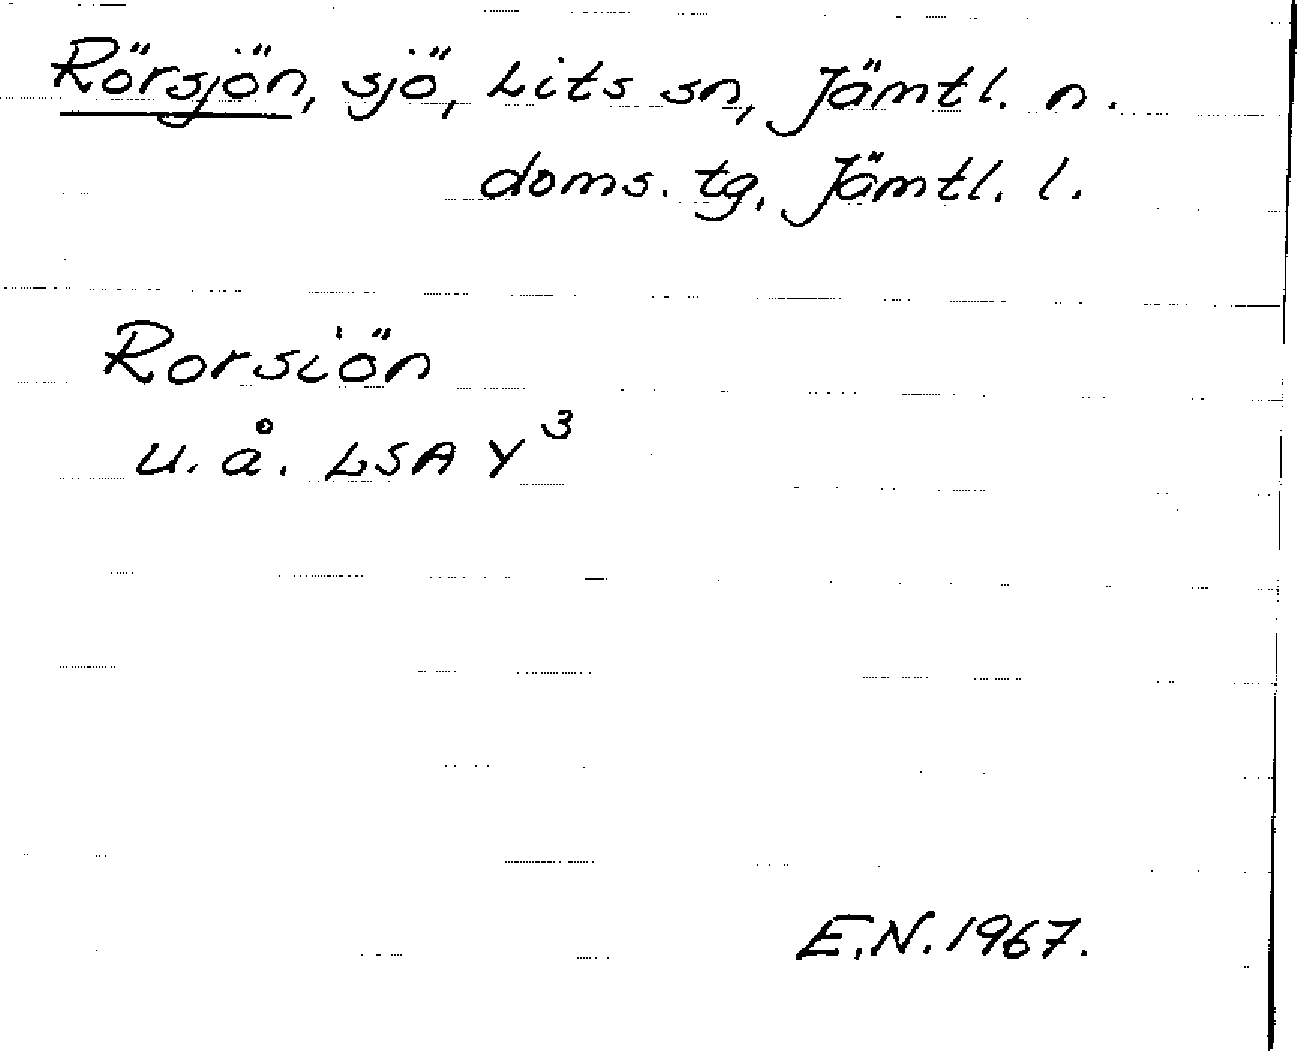 Rörsjön, sjö, Lits sn, Jämtl. n.
doms. tg, Jämtl. l.
Rorsiön
u. å. LSA Y³
E.N. 1967.